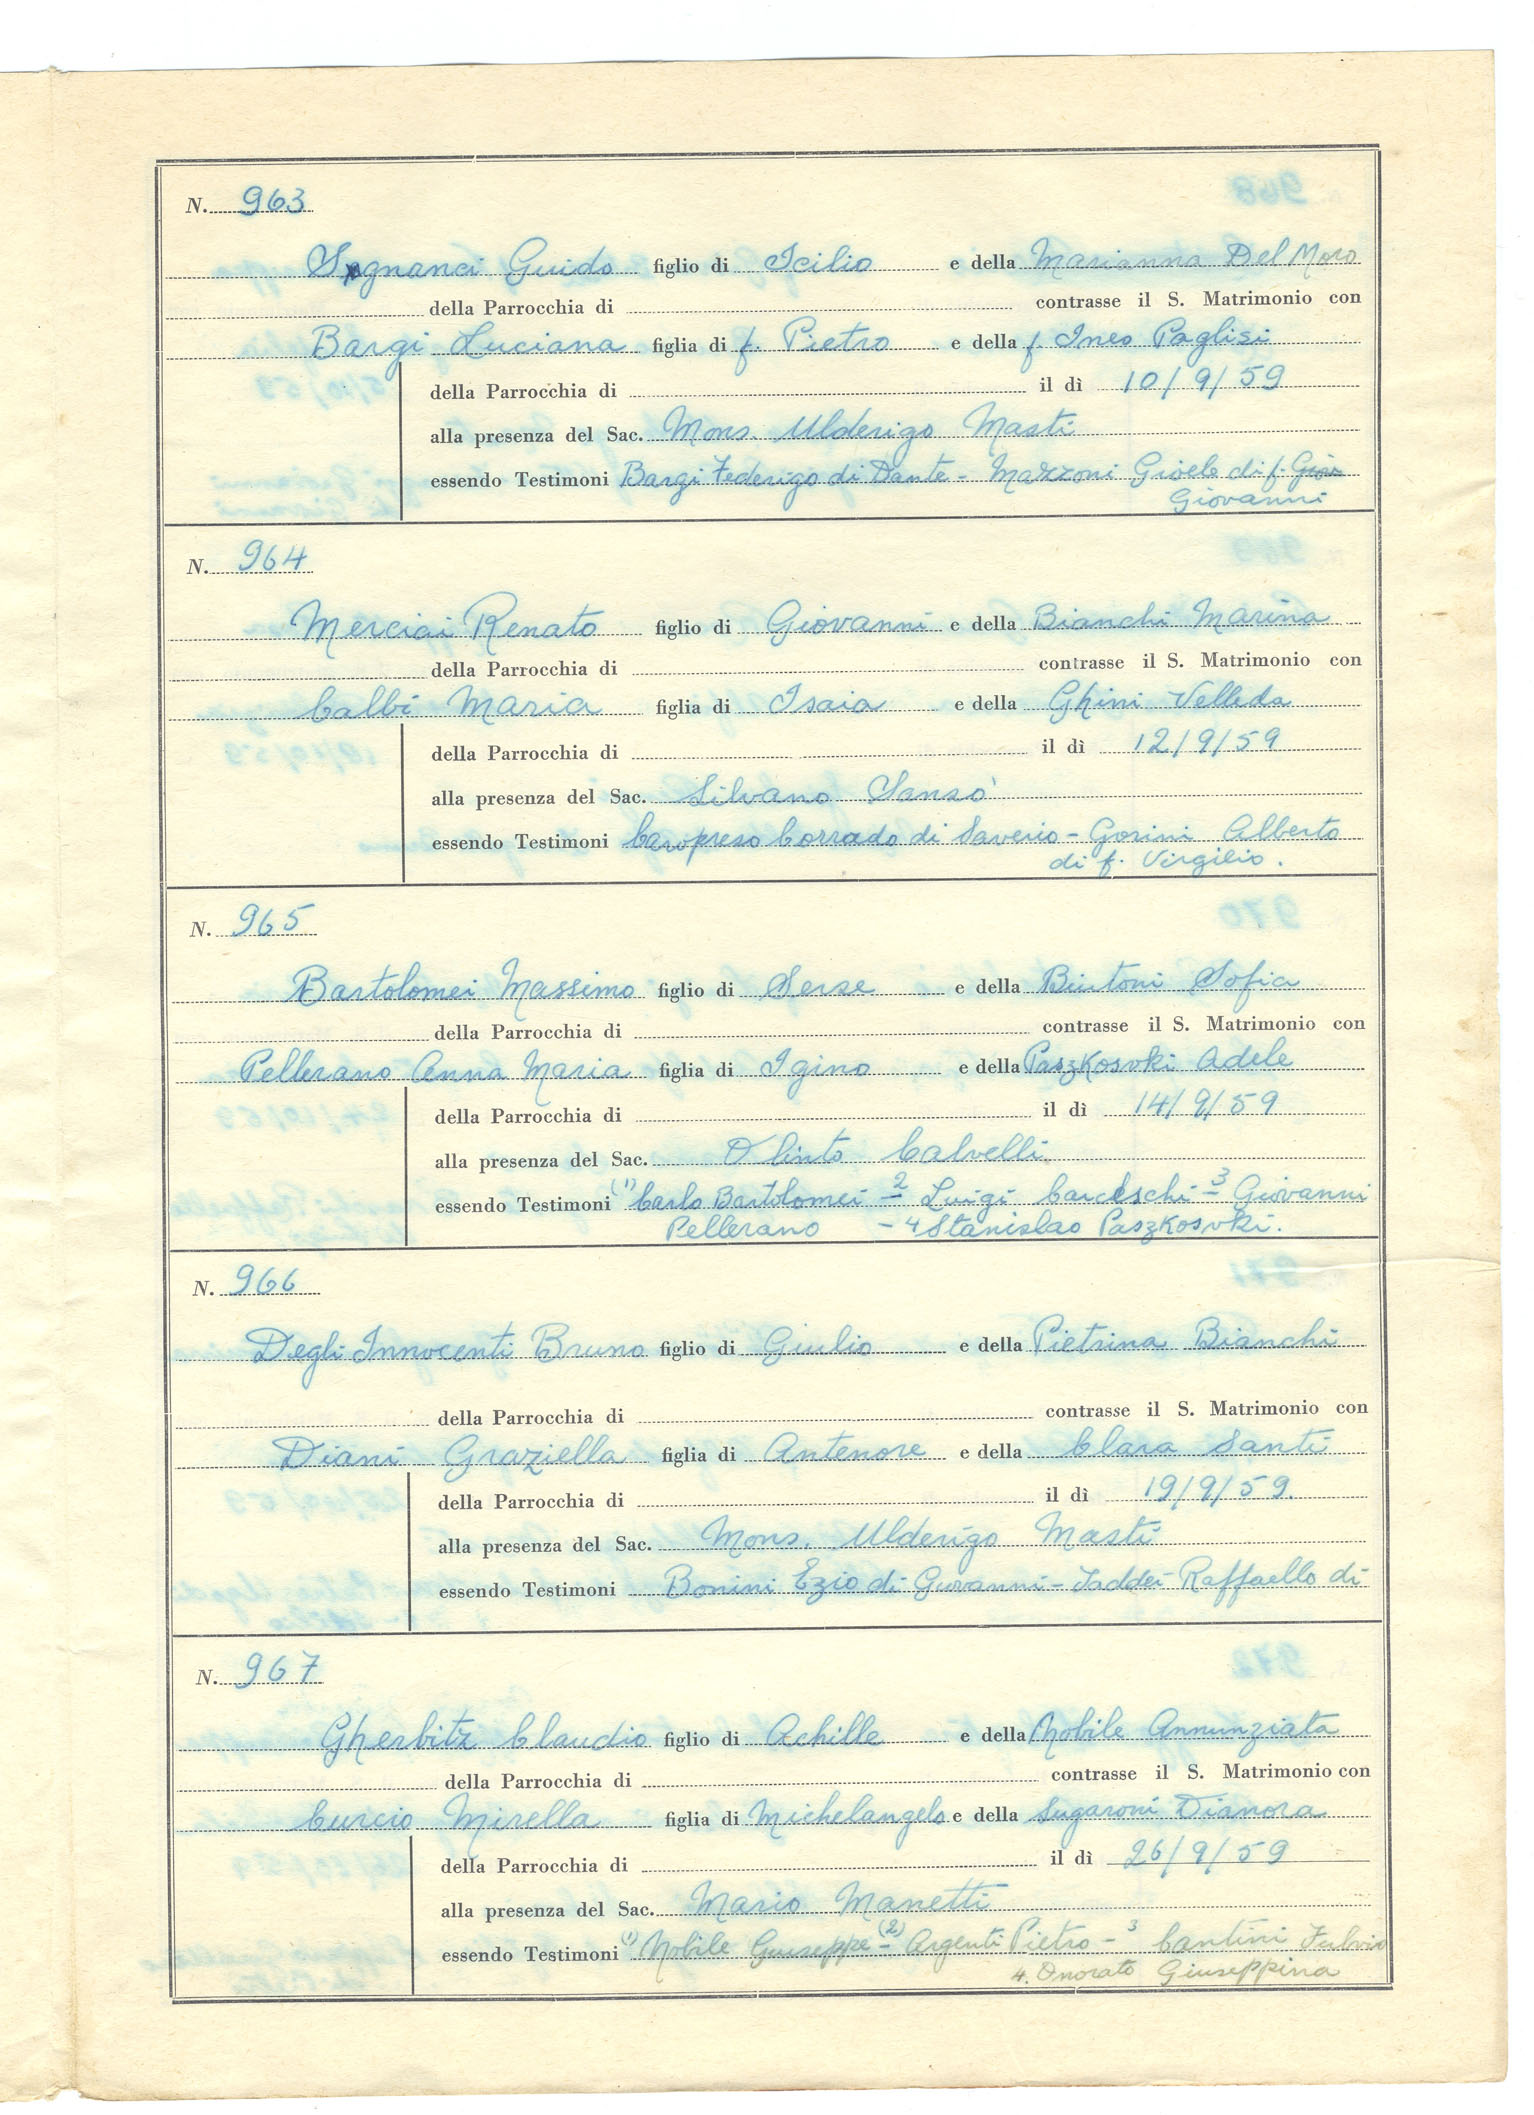 N. 963
Sognanci Guido figlio di Icilio e della Marianna Del Moro
della Parrocchia di contrasse il S. Matrimonio con
Bargi Luciana figlia di f. Pietro e della f. Ines Paglisi
della Parrocchia di il dì 10/9/59
alla presenza del Sac. Mons. Ulderigo Masti
essendo Testimoni Bargi Federigo di Dante - Mazzoni Gioele di f. Giov
Giovanni
N. 964
Merciai Renato figlio di Giovanni e della Bianchi Marina
della Parrocchia di contrasse il S. Matrimonio con
Calbi Maria figlia di Isaia e della Ghini Velleda
della Parrocchia di il dì 12/9/59
alla presenza del Sac. Silvano Sansò
essendo Testimoni Caropreso Corrado di Saverio - Gorini Alberto
di f. Virgilio.
N. 965
Bartolomei Massimo figlio di Serse e della Buitoni Sofia
della Parrocchia di contrasse il S. Matrimonio con
Pellerano Anna Maria figlia di Igino e della Paszkosvki Adele
della Parrocchia di il dì 14/9/59
alla presenza del Sac. Olinto Calvelli
essendo Testimoni (1) Carlo Bartolomei - 2 Luigi - 3 Giovanni
Pellerano - 4 Stanislao Paszkosvki.
N. 966
Degli Innocenti Bruno figlio di Giulio e della Pietrina Bianchi
della Parrocchia di contrasse il S. Matrimonio con
Diani Graziella figlia di Antenore e della Clara Santi
della Parrocchia di il dì 19/9/59.
alla presenza del Sac. Mons. Ulderigo Masti
essendo Testimoni Bonini Ezio di Giovanni - Taddei Raffaello di
N. 967
Gherbitz Claudio figlio di Achille e della Nobile Annunziata
della Parrocchia di contrasse il S. Matrimonio con
Curcio Mirella figlia di Michelangelo e della Sugaroni Dianora
della Parrocchia di il dì 26/9/59
alla presenza del Sac. Mario Manetti
essendo Testimoni (1) Nobile Giuseppe - (2) Argenti Pietro - 3 Cantini Fulvio
4. Onorato Giuseppina